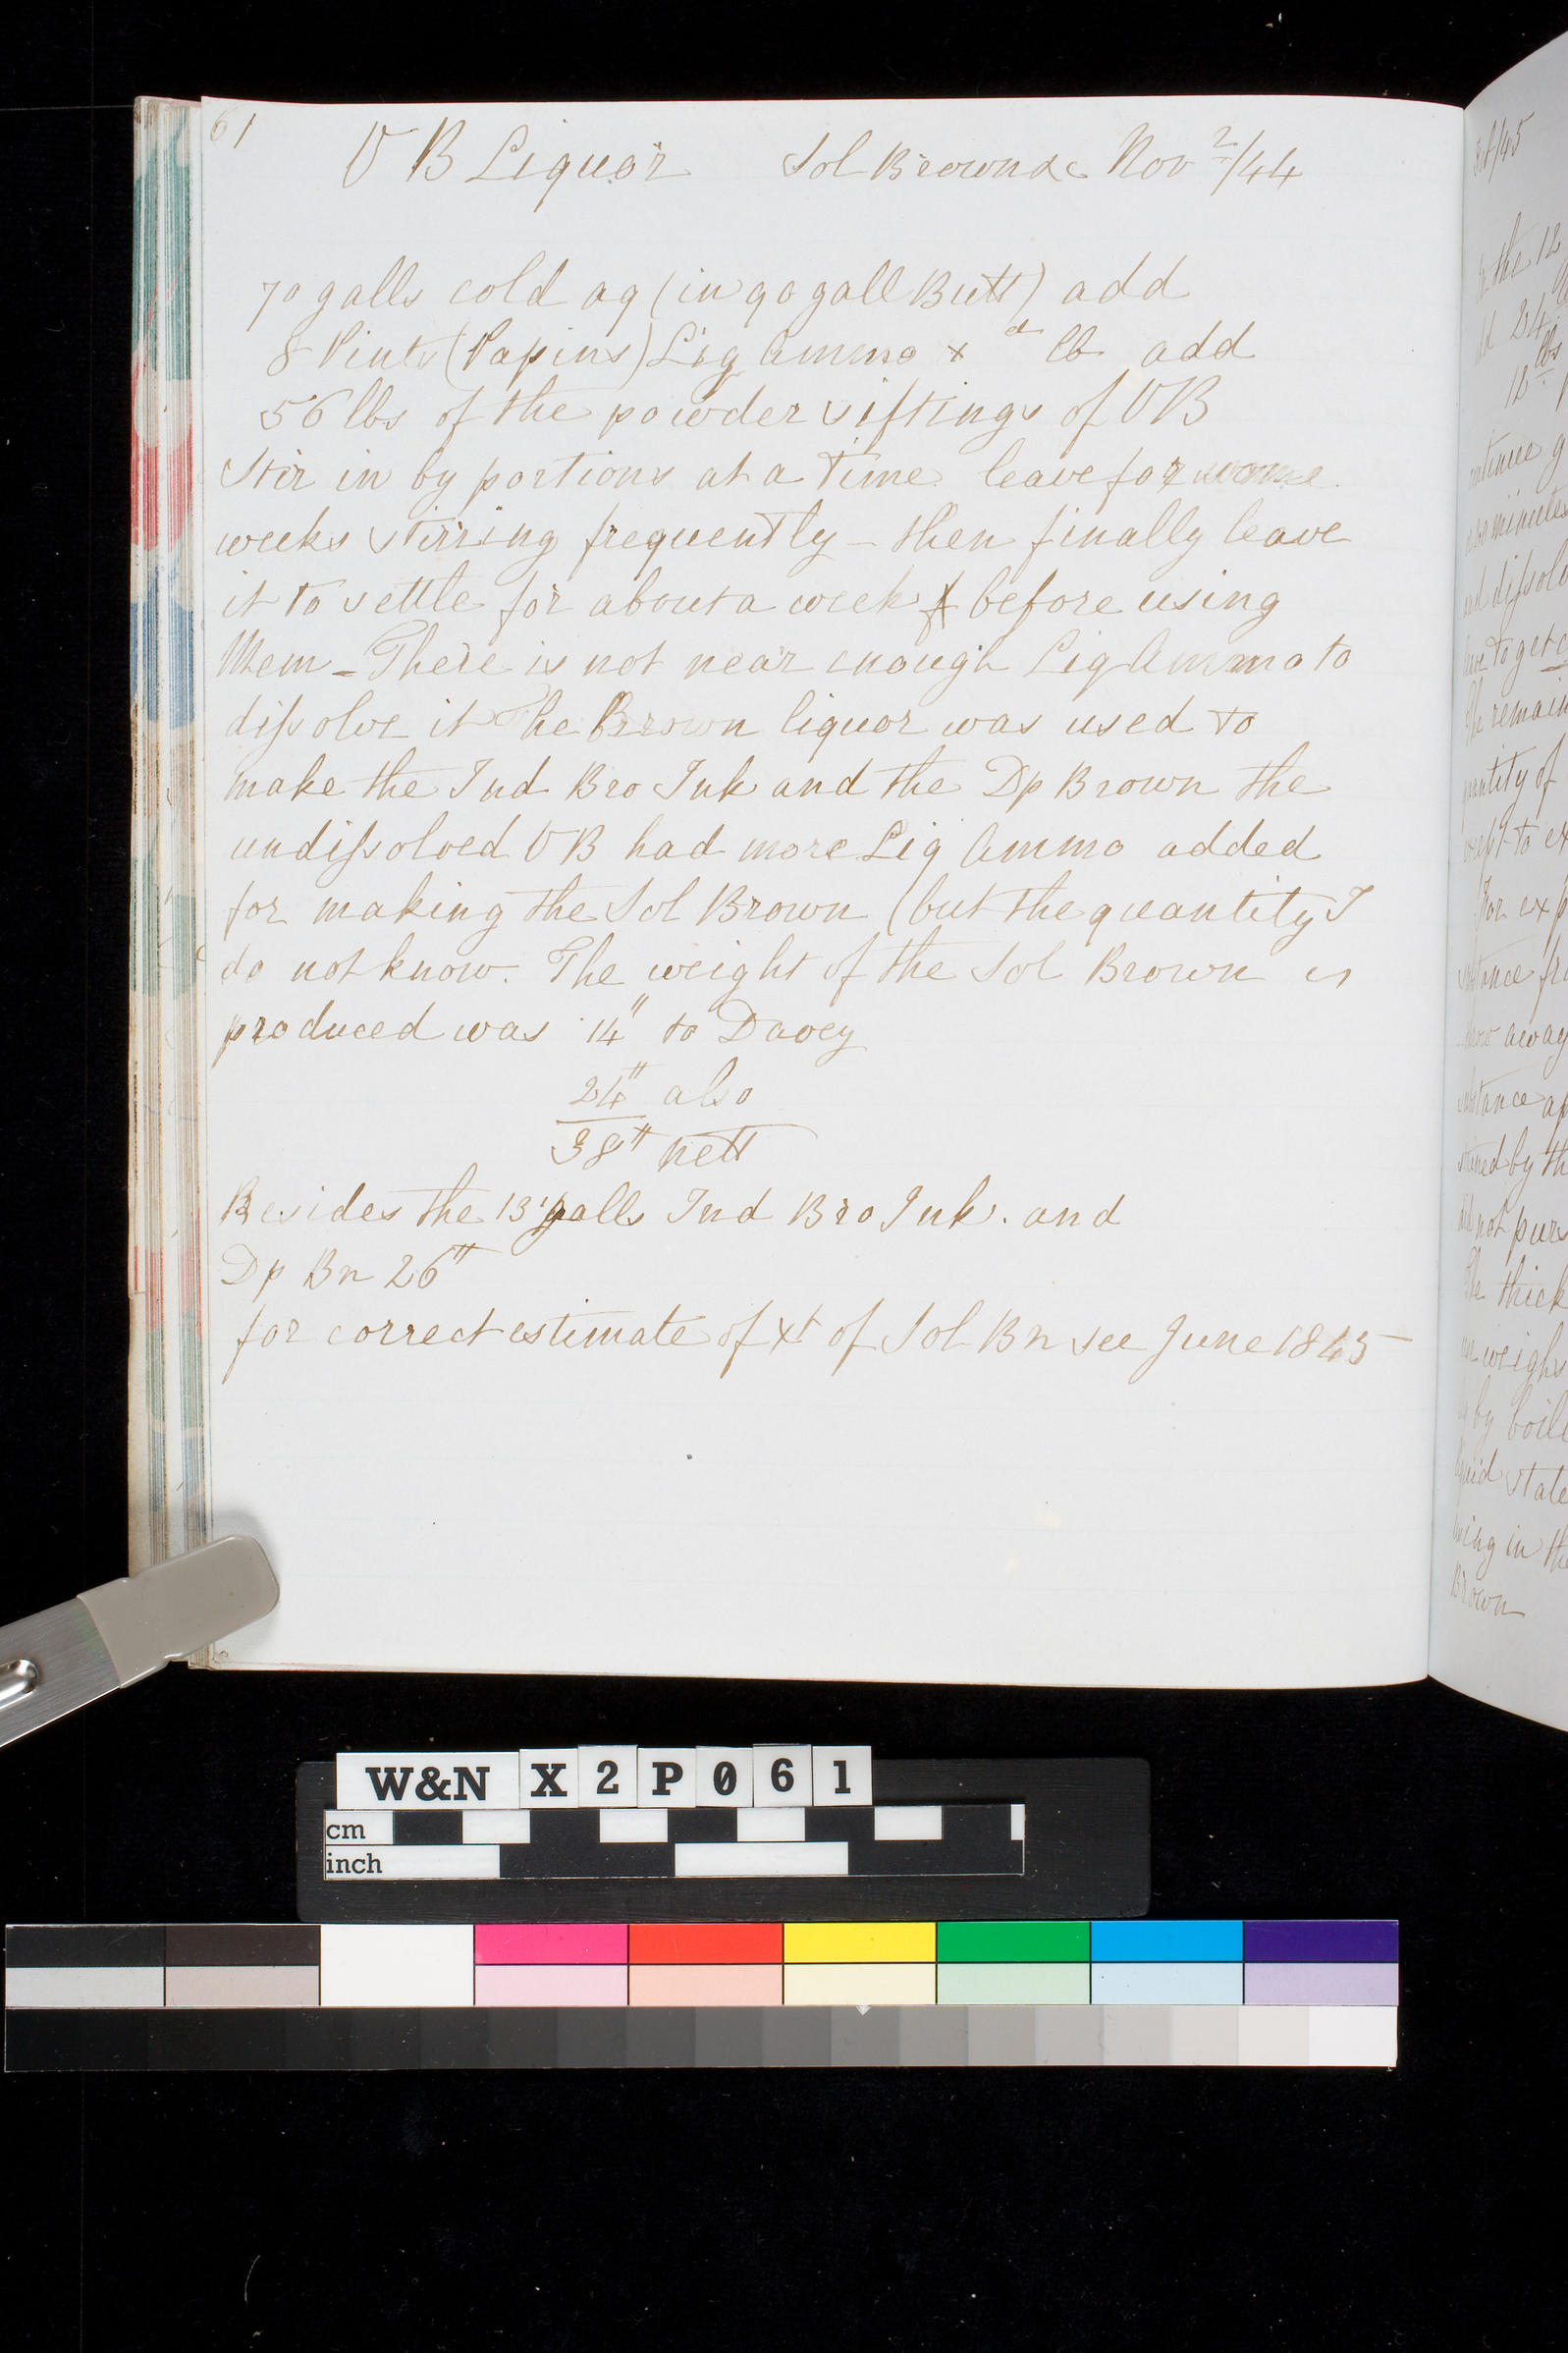 61
V B Liquor Sol Brown &c Nov 2/44
70 galls cold aq (in 90 gall Butt) add
8 Pints (Papins) Liq Ammo x d lb add
56 lbs of the powder siftings of VB
Stir in by portions at a time leave for some
weeks stirring frequently - then finally leave
it to settle for about a week before using
Mem - There is not near enough Liq Ammo to
dissolve it The Brown liquor was used to
make the Ind Bro Ink and the Dp Brown the
undissolved VB had more Liq Ammo added
for making the Sol Brown (but the quantity I
do not know. The weight of the Sol Brown is
produced was 14" to Davey
24" also
38" nett
Besides the 13 galls Ind Bro Ink. and
Dp Bn 26"
for correct estimate of xt of Sol Bn see June 1845
/45
the 12
24
12 lbs
minutes
to get
The remain
quantity of
to ex
For exp
away
substance
by th
not purs
The thick
weighs
by boil
state
in the
Brown
W&N X2P061
cm
inch